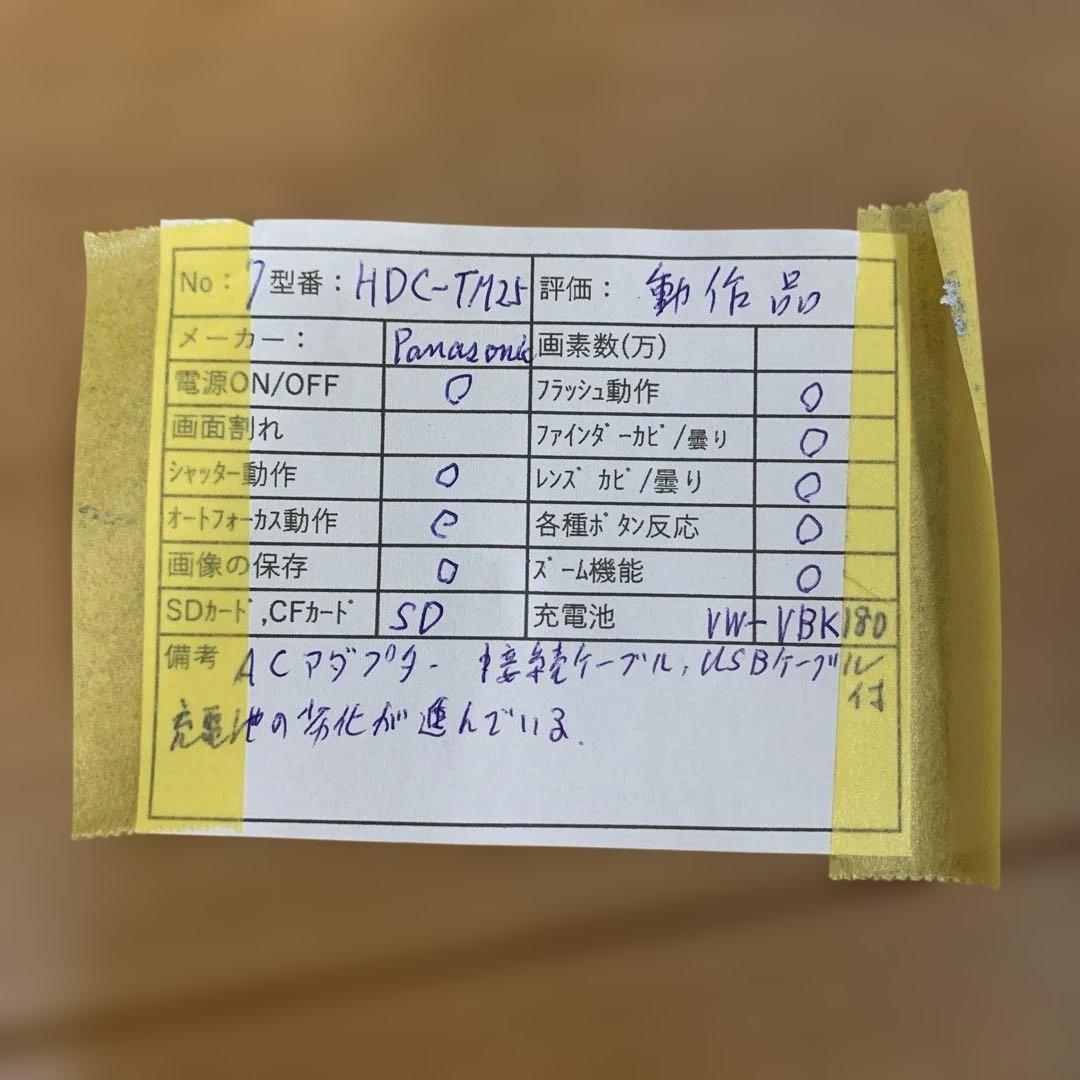 No：7 型番：HDC-TM25 評価：動作品
メーカー： Panasonic 画素数(万)
電源ON/OFF ○ ﾌﾗｯｼｭ動作 ○
画面割れ ﾌｧｲﾝﾀﾞｰｶﾋﾞ/曇り ○
ｼｬｯﾀｰ動作 ○ ﾚﾝｽﾞｶﾋﾞ/曇り ○
ｵｰﾄﾌｫｰｶｽ動作 ○ 各種ﾎﾞﾀﾝ反応 ○
画像の保存 ○ ｽﾞｰﾑ機能 ○
SDｶｰﾄﾞ,CFｶｰﾄﾞ SD 充電池 VW-VBK180
備考 ACアダプター 接続ケーブル,USBケーブル
付
充電池の劣化が進んでいる.